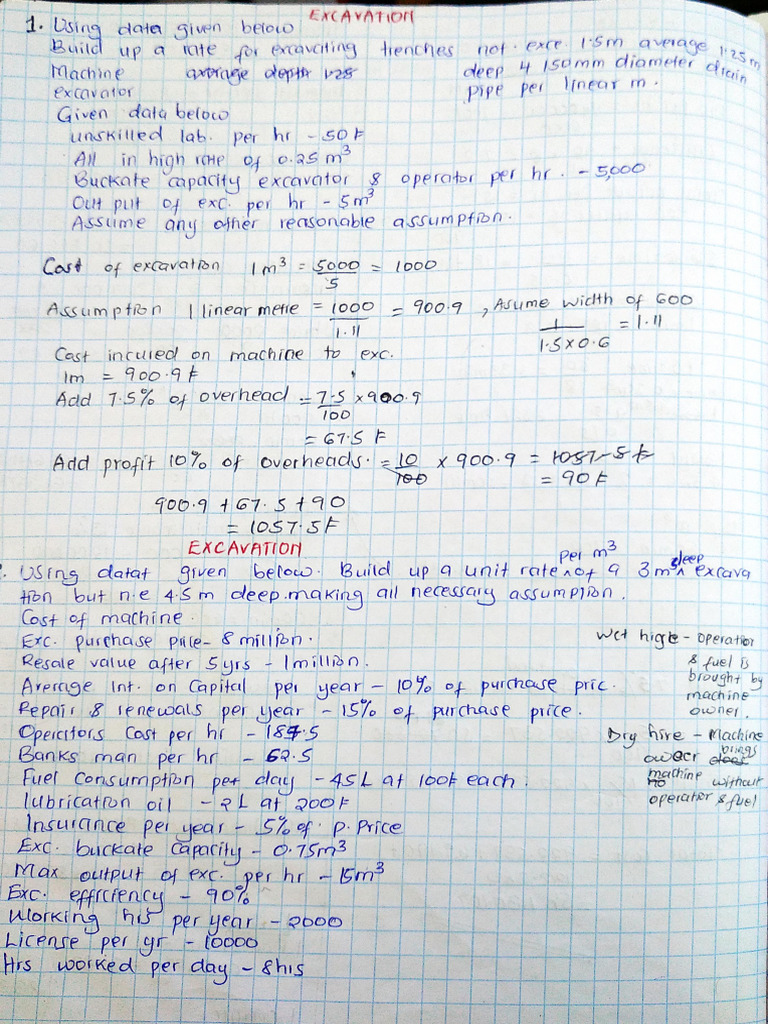 EXCAVATION
1. Using data given below
Build up a rate for excavating trenches not exce. 1.5m average 1.25m
Machine average depth 1.25 deep & 150mm diameter drain
excavator pipe per linear m.
Given data below
unskilled lab. per hr - 50 F
All in high rate of 0.25 m³
Buckate capacity excavator & operator per hr. - 5,000
Out put of exc. per hr - 5m³
Assume any other reasonable assumption.
Cost of excavation 1m³ = 5000/5 = 1000
Assumption 1 linear metre = 1000/1.11 = 900.9, Asume width of 600
1/1.5x0.6 = 1.11
Cost incured on machine to exc.
1m = 900.9 F
Add 7.5% of overhead = 7.5/100 x 900.9
= 67.5 F
Add profit 10% of overheads. = 10/100 x 900.9 = 1057.5 F
= 90 F
900.9 + 67.5 + 90
= 1057.5 F
EXCAVATION
2. Using datat given below. Build up a unit rate per m³ of a 3m³ deep excava
tion but n.e 4.5 m deep. making all necessary assumption.
Cost of machine.
Exc. purchase price - 8 million.
Resale value after 5yrs - 1 million.
Average Int. on Capital per year - 10% of purchase pric.
Repair & renewals per year - 15% of purchase price.
Operators Cost per hr - 187.5
Banks man per hr - 62.5
Fuel Consumption per day - 45L at 100F each.
lubrication oil - 2L at 200F
Insurance per year - 5% of p. price
Exc. buckate Capacity - 0.75m³
Max output of exc. per hr - 15m³
Exc. efficiency - 90%
Working hrs per year - 2000
License per yr - 10000
Hrs worked per day - 8hrs
Wet high - operatior
& fuel is
brought by
machine
owner.
Dry hire - Machine
owner does brings
machine
no without
operator & fuel